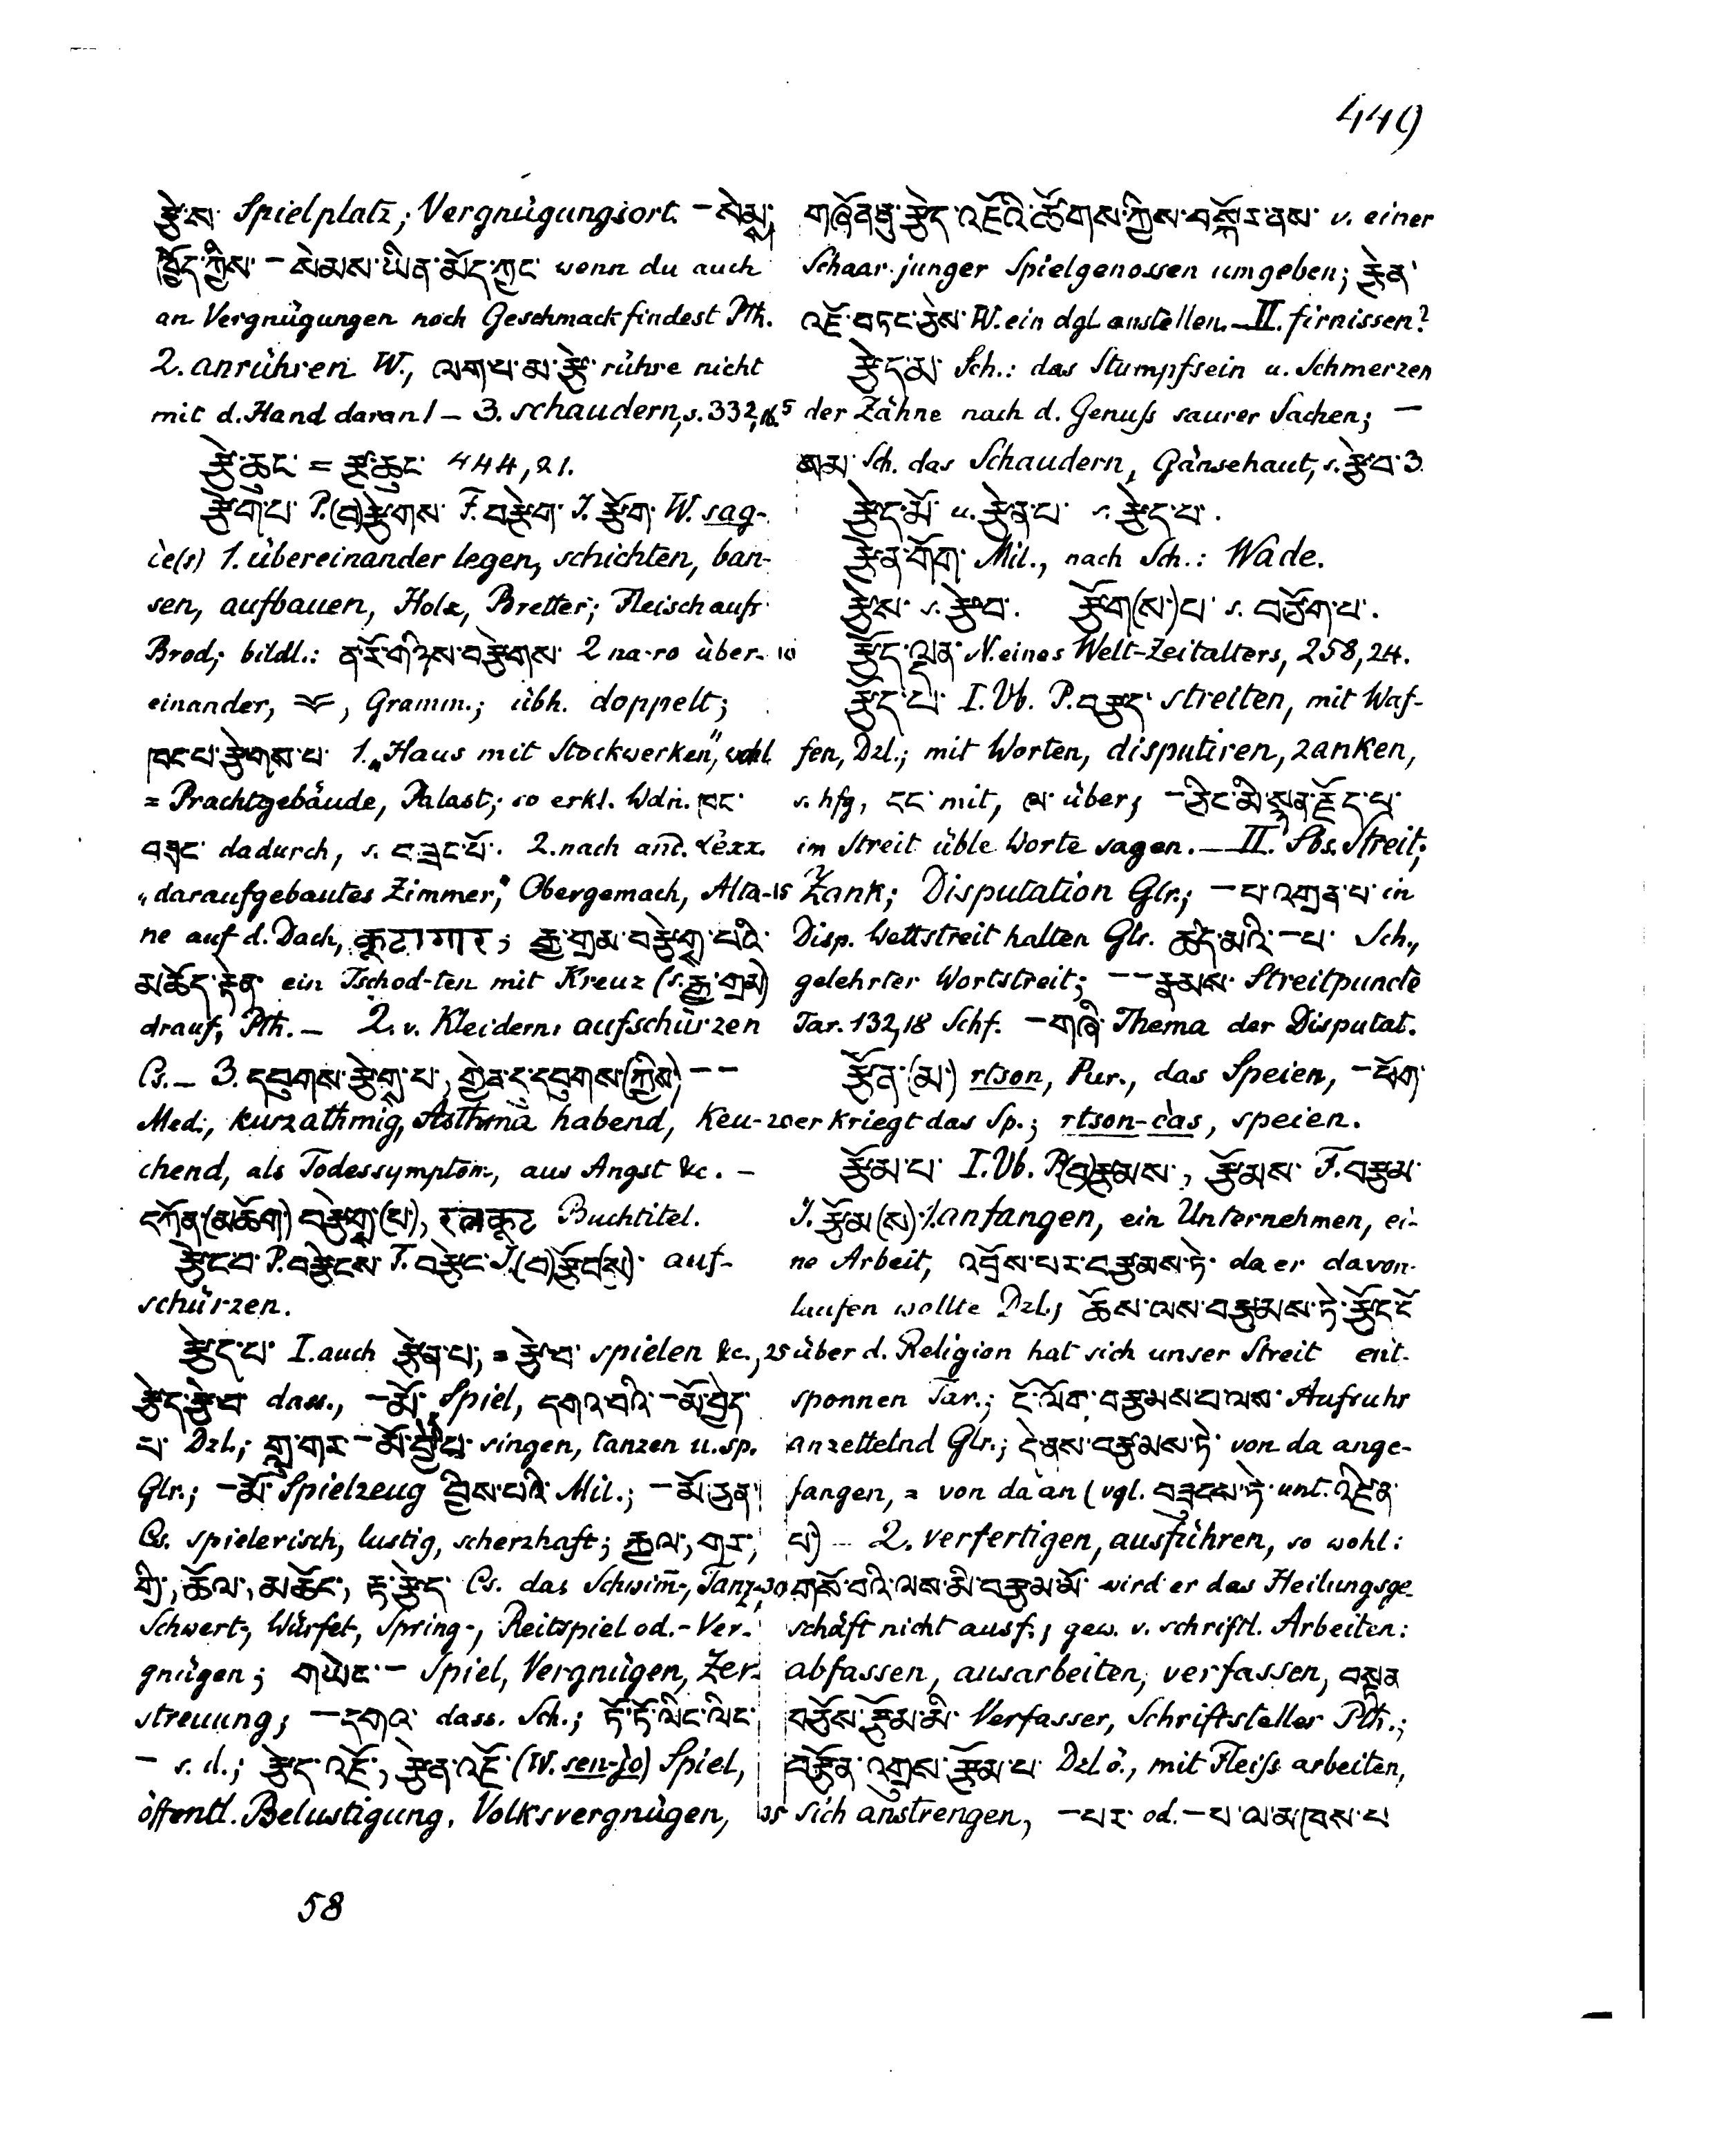 449
རྩེས་ Spielplatz; Vergnügungsort. – སེམས་
ཁྱོད་ཀྱིས་ – སེམས་ཡིན་མོད་ཀྱང་ wenn du auch
an Vergnügungen noch Geschmack findest Pth.
2. anrühren W., ལག་པ་མ་རྩེ་ rühre nicht
mit d. Hand daran! – 3. schaudern, s. 332,16. 5
རྩེ་ཆུང་ = རྩ་ཆུང་ 444,21.
རྩེག་པ་ P.(བ)རྩེགས་ F. བརྩེག་ J. རྩོག་ W. sag-
ce(s) 1. übereinander legen, schichten, ban-
sen, aufbauen, Holz, Bretter; Fleisch aufs
Brod; bildl.: ན་རོ་གཉིས་བརྩེགས་ 2 na-ro über- 10
einander, Gramm.; übh. doppelt;
ཁང་པ་རྩེགས་པ་ 1. „Haus mit Stockwerken", wohl
= Prachtgebäude, Palast; so erkl. Wdn. ཁང་
བཟང་ dadurch, s. ང་ཟང་པོ་. 2. nach and. Lexx.
„daraufgebautes Zimmer," Obergemach, Alta- 15
ne auf d. Dach, कूटागार; རྒྱ་གྲམ་བརྩེགས་པའི་
མཆོད་རྟེན་ ein Tschod-ten mit Kreuz (s. རྒྱ་གྲམ)
drauf, Pth. – 2. v. Kleidern: aufschürzen
Cs. – 3. དབུགས་རྩེགས་པ་, གྱེན་དུ་དབུགས་(ཀྱིས) – –
Med., kurzathmig, Asthma habend, Keu- 20
chend, als Todessymptom, aus Angst &c. –
དཀོན་(མཆོག་)བརྩེགས་(པ་), रत्नकूट Buchtitel.
རྩེང་བ་ P. བརྩེངས་ F. བརྩེང་ J. (བ)རྩོང(ས)་ auf-
schürzen.
རྩེད་པ་ I. auch རྩེན་པ་; = རྩེ་བ་ spielen &c., 25
རྩེད་རྩེ་བ་ dass., – མོ་ Spiel, དགའ་བའི་ – མོ་བྱེད་
པ་ Dzl.; གླུ་གར་ – མོ་བྱེད་པ་ singen, tanzen u. sp.
Glr.; – མོ་ Spielzeug བྱིས་པའི་ Mil.; – མོ་ཅན་
Cs. spielerisch, lustig, scherzhaft; རྐྱལ་, གར་,
གྲི་, ཆོལ་, མཆོང་, རྟ་རྩེད་ Cs. das Schwim̅-, Tanz-, 30
Schwert-, Würfel-, Spring-, Reitspiel od. -Ver-
gnügen; གཡེང་ – Spiel, Vergnügen, Zer-
streuung; – དགའ་ dass. Sch.; ཏོ་ཏོ་ལིང་ལིང་
– s. d.; རྩེད་འཇོ་, རྩེན་འཇོ་ (W. sen-jo) Spiel,
öffentl. Belustigung, Volksvergnügen, 35
གཞོན་ནུ་རྩེད་འཇོའི་ཚོགས་ཀྱིས་བསྐོར་ནས་ v. einer
Schaar junger Spielgenossen umgeben; རྩེན་
འཇོ་བཏང་ཅེས་ W. ein dgl. anstellen. – II. firnissen?
རྩེད་མ་ Sch.: das Stumpfsein u. Schmerzen
der Zähne nach d. Genuss saurer Sachen; –
Sch. das Schaudern, Gänsehaut, s. རྩེ་བ་ 3.
རྩེད་མོ་ u. རྩེན་པ་ s. རྩེད་པ་.
རྩེན་གོག་ Mil., nach Sch.: Wade.
རྩེས་ s. རྩེ་བ་. རྩོག(ས་)པ་ s. བཙོག་པ་.
རྩོད་ལྡན་ N. eines Welt-Zeitalters, 258,24.
རྩོད་པ་ I. Vb. P. བརྩད་ streiten, mit Waf-
fen, Dzl.; mit Worten, disputiren, zanken,
s. hfg, དང་ mit, ལ་ über; – ཅིང་མི་སྙན་རྗོད་པ་
im Streit üble Worte sagen. – II. Sbs. Streit,
Zank; Disputation Glr.; – པ་འགྲན་པ་ in
Disp. Wettstreit halten Glr. ཚད་མའི་ – པ་ Sch.,
gelehrter Wortstreit; – – རྣམས་ Streitpuncte
Tar. 132,18 Schf. – གཞི་ Thema der Disputat.
རྩོན་(མ་) rtson, Pur., das Speien, – ཕོག་
er kriegt das Sp.; rtson-cas, speien.
རྩོམ་པ་ I. Vb. P.(བ)རྩམས་, རྩོམས་ F. བརྩམ་
J. རྩོམ(ས)་ 1. anfangen, ein Unternehmen, ei-
ne Arbeit, འབྲོས་པར་བརྩམས་ཏེ་ da er davon-
laufen wollte Dzl.; ཆོས་ལས་བརྩམས་ཏེ་རྩོད་དོ་
über d. Religion hat sich unser Streit ent-
sponnen Tar.; ངོ་ལོག་བརྩམས་པ་ལས་ Aufruhr
anzettelnd Glr.; དེ་ནས་བརྩམས་ཏེ་ von da ange-
fangen, = von da an (vgl. བཟུངས་ཏེ་ unt. འཛིན་
པ་) – 2. verfertigen, ausführen, so wohl:
གསོ་བའི་ལས་མི་བརྩམ་མོ་ wird er das Heilungsge-
schäft nicht ausf.; gew. v. schriftl. Arbeiten:
abfassen, ausarbeiten, verfassen, བསྟན་
བཅོས་རྩོམ་མི་ Verfasser, Schriftsteller Pth.;
བརྩོན་འགྲུས་རྩོམ་པ་ Dzl. ö., mit Fleiss arbeiten,
sich anstrengen, – པར་ od. – པ་ལ་མཁས་པ་
58